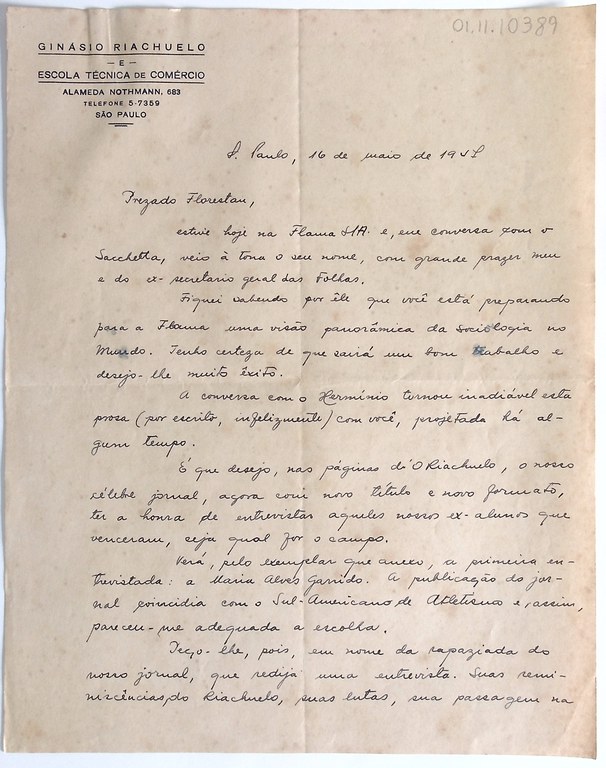 01.11.10389
GINÁSIO RIACHUELO
— E —
ESCOLA TÉCNICA DE COMÉRCIO
ALAMEDA NOTHMANN, 683
TELEFONE 5-7359
SÃO PAULO
S. Paulo, 16 de maio de
Prezado Florestan,
estive hoje na Flama S/A. e, em conversa com o
Sacchetta, veio à tona o seu nome, com grande prazer meu
e do ex-secretario geral das Folhas.
Fiquei sabendo por êle que você está preparando
para a Flama uma visão panorâmica da Sociologia no
Mundo. Tenho certeza de que sairá um bom trabalho e
desejo-lhe muito êxito.
A conversa com o Hermínio tornou inadiável esta
prosa (por escrito, infelizmente) com você, projetada há al-
gum tempo.
É que desejo, nas páginas d'O Riachuelo, o nosso
célebre jornal, agora com novo título e novo formato,
ter a honra de entrevistar aqueles nossos ex-alunos que
venceram, seja qual for o campo.
Verá, pelo exemplar que anexo, a primeira en-
trevistada: a Maria Alves Garrido. A publicação do jor-
nal coincidia com o Sul-Americano de Atletismo e, assim,
pareceu-me adequada a escolha.
Peço-lhe, pois, em nome da rapaziada do
nosso jornal, que redija uma entrevista. Suas remi-
niscências do Riachuelo, suas lutas, sua passagem na